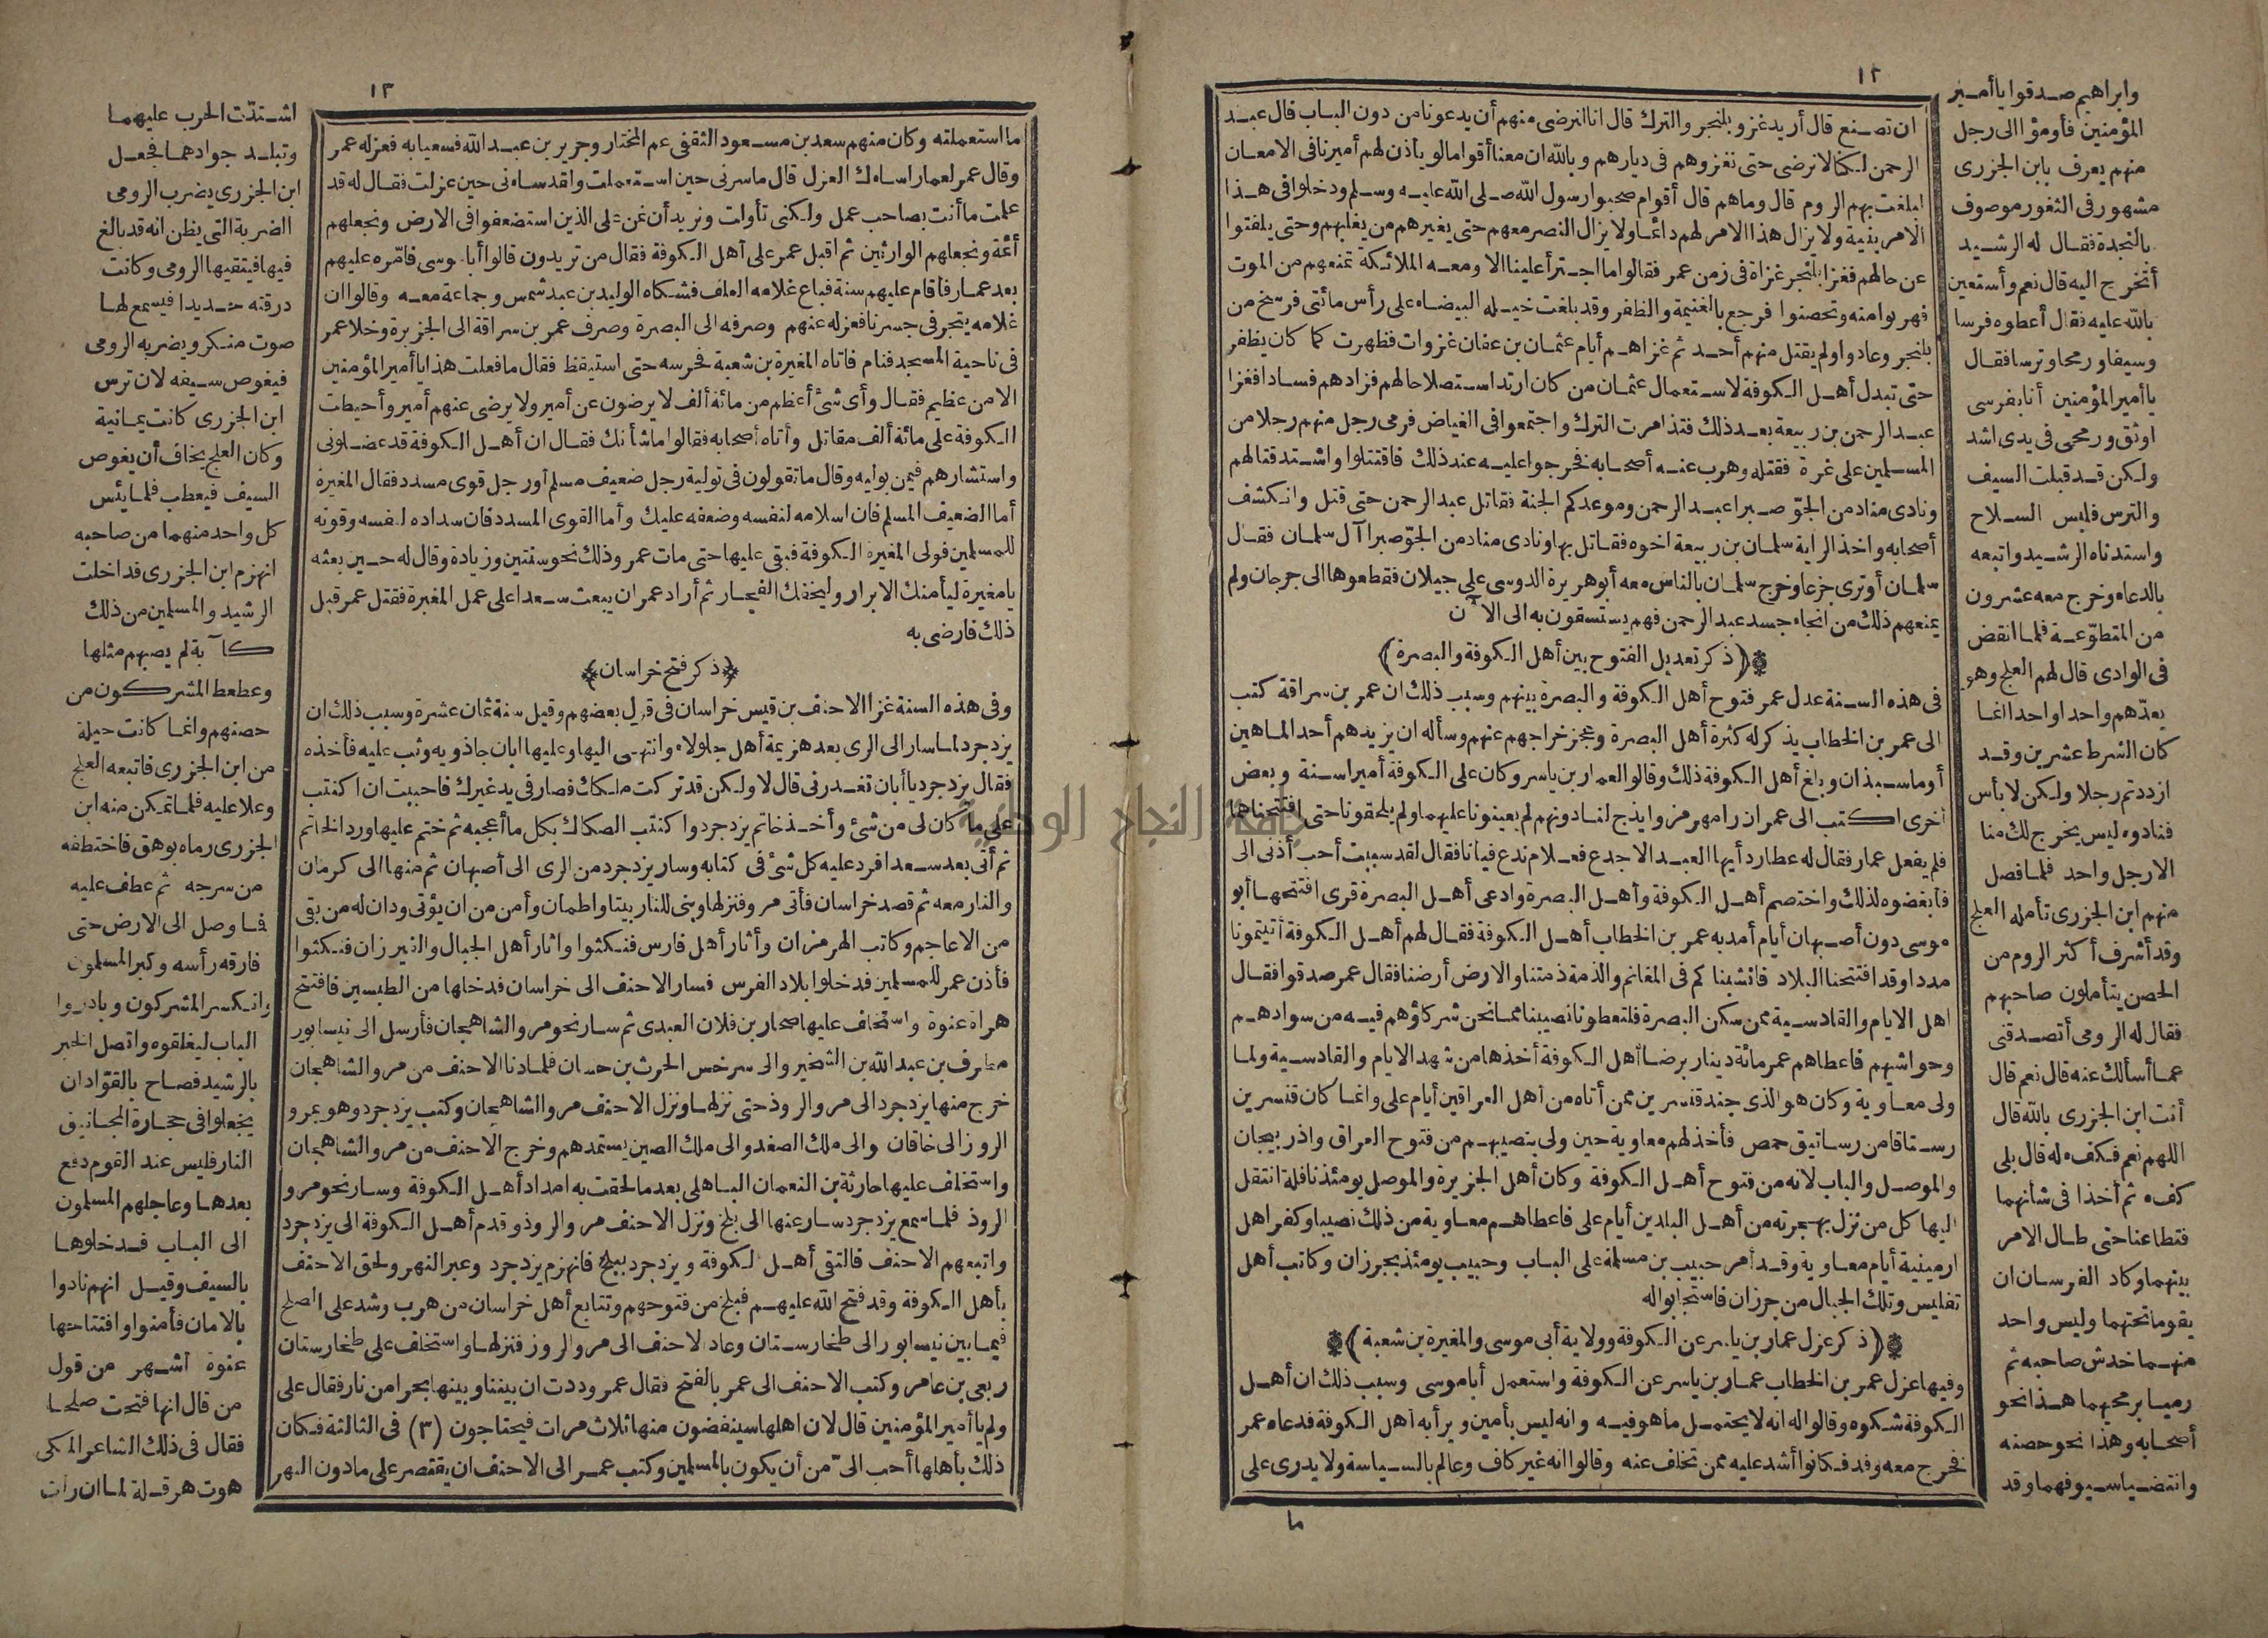 ١٢
ان تصنع قال أريد غزو بلنجر والترك قال انا لنرضى منهم أن يدعونا من دون الباب قال عبد
الرحمن لكنا لا نرضى حتى نغزوهم في ديارهم وبالله ان معنا أقواما لو يأذن لهم أميرنا في الامعان
لبلغت بهم الروم قال وما هم قال أقوام صحبوا رسول الله صلى الله عليه وسلم ودخلوا في هذا
الامر بنية ولا يزال هذا الامر لهم دائما ولا يزال النصر معهم حتى يغيرهم من يغلبهم وحتى يلفتوا
عن حالهم فغزا بلنجر غزاة في زمن عمر فقالوا ما اجترأ علينا الا ومعه الملائكة تمنعهم من الموت
فهربوا منه وتحصنوا فرجع بالغنيمة والظفر وقد بلغت خيله البيضاء على رأس مائتي فرسخ من
بلنجر وعادوا ولم يقتل منهم أحد ثم غزاهم أيام عثمان بن عفان غزوات فظهرت كما كان يظفر
حتى تبدل أهل الكوفة لاستعمال عثمان من كان ارتد استصلاحا لهم فزادهم فسادا فغزا
عبد الرحمن بن ربيعة بعد ذلك فتذامرت الترك واجتمعوا في الغياض فرمى رجل منهم رجلا من
المسلمين على غرة فقتله وهرب عنه أصحابه فخرجوا عليه عند ذلك فاقتتلوا واشتد قتالهم
ونادى مناد من الجوّ صبرا عبد الرحمن وموعدكم الجنة فقاتل عبد الرحمن حتى قتل وانكشف
أصحابه واخذ الراية سلمان بن ربيعة اخوه فقاتل بها ونادى مناد من الجوّ صبرا آل سلمان فقال
سلمان أو ترى جزعا وخرج سلمان بالناس معه أبو هريرة الدوسي على جيلان فقطعوها الى جرجان ولم
يمنعهم ذلك من انجاء جسد عبد الرحمن فهم يستسقون به الى الآن
(ذكر تعديل الفتوح بين أهل الكوفة والبصرة)
في هذه السنة عدل عمر فتوح أهل الكوفة والبصرة بينهم وسبب ذلك ان عمر بن سراقة كتب
الى عمر بن الخطاب يذكر له كثرة أهل البصرة وعجز خراجهم عنهم وسأله ان يزيدهم أحد الماهين
أو ماسبذان وبلغ أهل الكوفة ذلك وقالوا لعمار بن ياسر وكان على الكوفة أميرا سنة وبعض
أخرى اكتب الى عمر ان رامهرمز وايذج لنا دونهم لم يعينونا عليهما ولم يلحقونا حتى افتتحناهما
فلم يفعل عمار فقال له عطارد أيها العبد الاجدع فعلام ندع فيأنا فقال لقد سببت أحب أذني الى
فأبغضوه لذلك واختصم أهل الكوفة وأهل البصرة وادعى أهل البصرة قرى افتتحها أبو
موسى دون أصبهان أيام أمد به عمر بن الخطاب أهل الكوفة فقال لهم أهل الكوفة أتيتمونا
مددا وقد افتتحنا البلاد فانشبناكم في المغانم والذمة ذمتنا والارض أرضنا فقال عمر صدقوا فقال
اهل الايام والقادسية ممن سكن البصرة فلتعطونا نصيبنا مما نحن شركاؤهم فيه من سوادهم
وحواشيهم فاعطاهم عمر مائة دينار برضا أهل الكوفة أخذها من شهد الايام والقادسية ولما
ولي معاوية وكان هو الذي جند قنسرين ممن أتاه من أهل العراقين أيام علي وانما كان قنسرين
رستاقا من رساتيق حمص فأخذ لهم معاوية حين ولي بنصيبهم من فتوح العراق واذربيجان
والموصل والباب لانه من فتوح أهل الكوفة وكان أهل الجزيرة والموصل يومئذ ناقلة انتقل
اليها كل من نزل بهجرته من أهل البلدين أيام علي فاعطاهم معاوية من ذلك نصيبا وكفر اهل
ارمينية أيام معاوية وقد أمر حبيب بن مسلمة على الباب وحبيب يومئذ بجرزان وكاتب أهل
تفليس وتلك الجبال من جرزان فاستجابوا له
(ذكر عزل عمار بن ياسر عن الكوفة وولاية أبي موسى والمغيرة بن شعبة)
وفيها عزل عمر بن الخطاب عمار بن ياسر عن الكوفة واستعمل أبا موسى وسبب ذلك ان أهل
الكوفة شكوه وقالوا له انه لا يحتمل ما هو فيه وانه ليس بأمين ونزا به اهل الكوفة فدعاه عمر
فخرج معه وفد فكانوا أشد عليه ممن تخلف عنه وقالوا انه غير كاف وعالم بالسياسة ولا يدرى على
ما
وابراهيم صدقوا يا أمير
المؤمنين فأومؤا الى رجل
منهم يعرف بابن الجزري
مشهور في الثغور موصوف
بالنجدة فقال له الرشيد
أتخرج اليه قال نعم وأستعين
بالله عليه فقال أعطوه فرسا
وسيفا ورمحا وترسا فقال
يا أمير المؤمنين أنا بفرسي
اوثق ورمحي في يدي اشد
ولكن قد قبلت السيف
والترس فلبس السلاح
واستدناه الرشيد واتبعه
بالدعاء وخرج معه عشرون
من المتطوّعة فلما انقض
في الوادي قال لهم العلج وهو
يعدّهم واحدا واحدا انما
كان الشرط عشرين وقد
ازددتم رجلا ولكن لا بأس
فنادوه ليس يخرج لك منا
الا رجل واحد فلما فصل
منهم ابن الجزري تأمله العلج
وقد أشرف أكثر الروم من
الحصن يتأملون صاحبهم
فقال له الرومي أتصدقني
عما أسألك عنه قال نعم قال
أنت ابن الجزري بالله قال
اللهم نعم فكفء له قال بلى
كفء ثم أخذا في شأنهما
فتطاعنا حتى طال الامر
بينهما وكاد الفرسان ان
يقوما تحتهما وليس واحد
منهما خدش صاحبه ثم
رميا برمحيهما هذا نحو
أصحابه وهذا نحو حصنه
وانتضيا سيوفهما وقد
١٣
ما استعملته وكان منهم سعد بن مسعود الثقفي عم المختار وجرير بن عبد الله فسعيا به فعزله عمر
وقال عمر لعمار اساءك العزل قال ما سرني حين استعملت ولقد ساءني حين عزلت فقال له قد
علمت ما أنت بصاحب عمل ولكني تأولت ونريد أن نمن على الذين استضعفوا في الارض ونجعلهم
أئمة ونجعلهم الوارثين ثم اقبل عمر على أهل الكوفة فقال من تريدون قالوا أبا موسى فأمّره عليهم
بعد عمار فأقام عليهم سنة فباع غلامه العلف فشكاه الوليد بن عبد شمس وجماعة معه وقالوا ان
غلامه يتجر في جسرنا فعزله عنهم وصرفه الى البصرة وصرف عمر بن سراقة الى الجزيرة وخلا عمر
في ناحية المسجد فنام فاتاه المغيرة بن شعبة فحرسه حتى استيقظ فقال ما فعلت هذا يا أمير المؤمنين
الا من عظيم فقال وأي شئ أعظم من مائة ألف لا يرضون عن أمير ولا يرضى عنهم أمير وأحيطت
الكوفة على مائة ألف مقاتل وأتاه أصحابه فقالوا ما شأنك فقال ان أهل الكوفة قد عضلوني
واستشارهم فيمن يوليه وقال ما تقولون في تولية رجل ضعيف مسلم أو رجل قوي مسدد فقال المغيرة
أما الضعيف المسلم فان اسلامه لنفسه وضعفه عليك وأما القوي المسدد فان سداده لنفسه وقوته
للمسلمين فولى المغيرة الكوفة فبقي عليها حتى مات عمر وذلك نحو سنتين وزيادة وقال له حين بعثه
يا مغيرة ليأمنك الابرار وليخفك الفجار ثم أراد عمر ان يبعث سعدا على عمل المغيرة فقتل عمر قبل
ذلك فارضى به
(ذكر فتح خراسان)
وفي هذه السنة غزا الاحنف بن قيس خراسان في قول بعضهم وقيل سنة ثمان عشرة وسبب ذلك ان
يزدجرد لما سار الى الري بعد هزيمة أهل جلولاء وانتهى اليها وعليها ابان جاذويه وثب عليه فأخذه
فقال يزدجرد يا أبان تغدرني قال لا ولكن قد تركت ملكك فصار في يد غيرك فاحببت ان اكتتب
على ما كان لي من شئ وأخذ خاتم يزدجرد واكتتب الصكاك بكل ما أعجبه ثم ختم عليها ورد الخاتم
ثم أتى بعد سعدا فرد عليه كل شئ في كتابه وسار يزدجرد من الري الى أصبهان ثم منها الى كرمان
والنار معه ثم قصد خراسان فأتى مرو فنزلها وبنى للنار بيتا واطمأن وأمن من ان يؤتى ودان له من بقي
من الاعاجم وكاتب الهرمزان وأثار أهل فارس فنكثوا واثار أهل الجبال والفيرزان فنكثوا
فأذن عمر للمسلمين فدخلوا بلاد الفرس فسار الاحنف الى خراسان فدخلها من الطبسين فافتتح
هراة عنوة واستخلف عليها صحار بن فلان العبدي ثم سار نحو مرو الشاهجان فأرسل الى نيسابور
مطرف بن عبد الله بن الشخير والى سرخس الحرث بن حسان فلما دنا الاحنف من مرو الشاهجان
خرج منها يزدجرد الى مرو الروذ حتى نزلها ونزل الاحنف مرو الشاهجان وكتب يزدجرد وهو بمرو
الروز الى خاقان والى ملك الصغد والى ملك الصين يستمدهم وخرج الاحنف من مرو الشاهجان
واستخلف عليها حارثة بن النعمان الباهلي بعد ما لحقت به امداد أهل الكوفة وسار نحو مرو
الروذ فلما سمع يزدجرد سار عنها الى بلخ ونزل الاحنف مرو الروذ وقدم أهل الكوفة الى يزدجرد
واتبعهم الاحنف فالتقى أهل الكوفة ويزدجرد ببلخ فانهزم يزدجرد وعبر النهر ولحق الاحنف
بأهل الكوفة وقد فتح الله عليهم فبلخ من فتوحهم وتتابع أهل خراسان من هرب وشد على الصلح
فيما بين نيسابور الى طخارستان وعاد الاحنف الى مرو الروز فنزلها واستخلف على طخارستان
ربعي بن عامر وكتب الاحنف الى عمر بالفتح فقال عمر وددت ان بيننا وبينها بحرا من نار فقال علي
ولم يا أمير المؤمنين قال لان اهلها سينفضون منها ثلاث مرات فيحتاجون (٣) في الثالثة فكان
ذلك بأهلها أحب الىّ من أن يكون بالمسلمين وكتب عمر الى الاحنف ان يقتصر على ما دون النهر
اشتدّت الحرب عليهما
وتبلد جوادهما فجعل
ابن الجزري يضرب الرومي
الضربة التي يظن انه قد بالغ
فيها فيتقيها الرومي وكانت
درقته حديدا فيسمع لها
صوت منكر ويضربه الرومي
فيغوص سيفه لان ترس
ابن الجزري كانت يمانية
وكان العلج يخاف أن يغوص
السيف فيعطب فلما يئس
كل واحد منهما من صاحبه
انهزم ابن الجزري فداخلت
الرشيد والمسلمين من ذلك
كآبة لم يصبهم مثلها
وعطعط المشركون من
حصنهم وانما كانت حيلة
من ابن الجزري فاتبعه العلج
وعلا عليه فلما تمكن منه ابن
الجزري رماه بوهق فاختطفه
من سرجه ثم عطف عليه
فما وصل الى الارض حتى
فارقه رأسه وكبر المسلمون
وانكسر المشركون وبادروا
الباب ليغلقوه واتصل الخبر
بالرشيد فصاح بالقوّاد ان
يجعلوا في حجارة المجانيق
النار فليس عند القوم دفع
بعدها وعاجلهم المسلمون
الى الباب فدخلوها
بالسيف وقيل انهم نادوا
بالامان فأمنوا وافتتاحها
عنوة أشهر من قول
من قال انها فتحت صلحا
فقال في ذلك الشاعر المكي
هوت هرقلة لما ان رأت
جامعة النجاح الوطنية